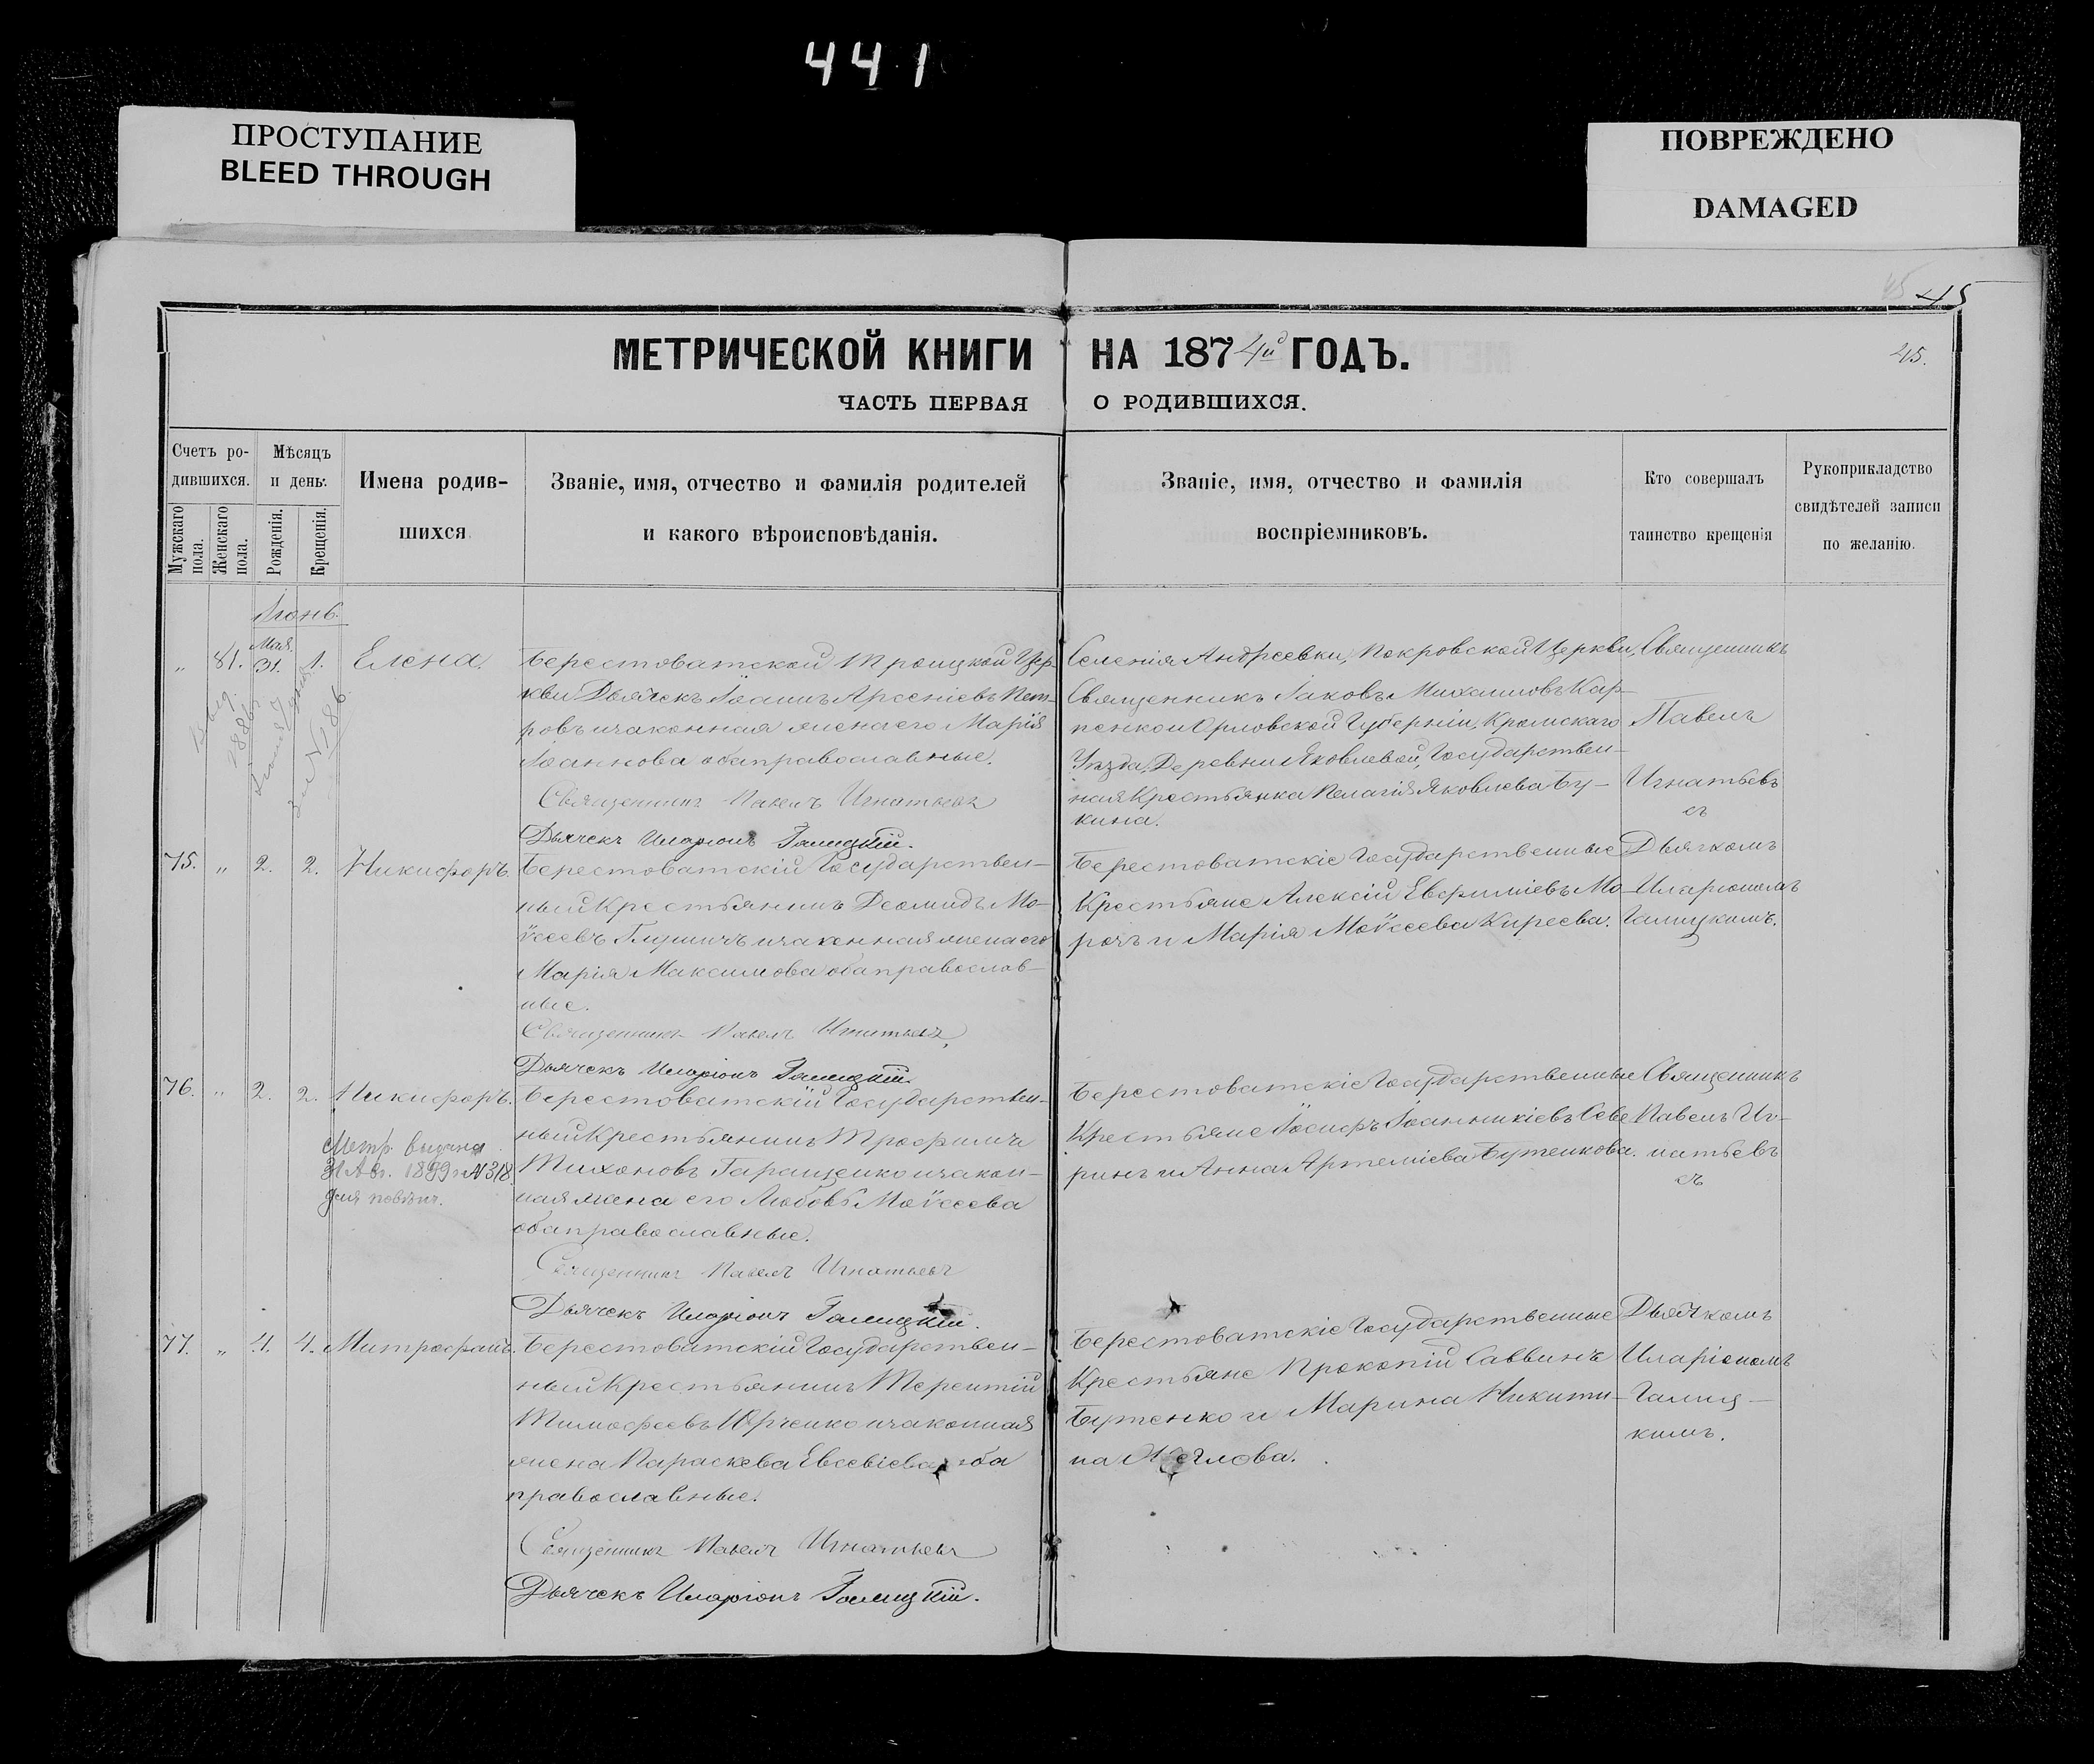 441
ПРОСТУПАНИЕ
BLEED THROUGH
ПОВРЕЖДЕНО
DAMAGED
45
МЕТРИЧЕСКОЙ КНИГИ НА 1874й ГОДЪ.
45.
ЧАСТЬ ПЕРВАЯ О РОДИВШИХСЯ.
Счетъ ро-
дившихся.
Мужскаго пола.
Женскаго пола.
Мѣсяцъ
и день.
Рожденія.
Крещенія.
Имена родив-
шихся
Званіе, имя, отчество и фамилія родителей
и какого вѣроисповѣданія.
Званіе, имя, отчество и фамилія
воспріемниковъ.
Кто совершалъ
таинство крещенія
Рукоприкладство
свидѣтелей записи
по желанію.
Іюнь.
„ 81. Мая 31. 1. Елена.
Берестоватской Троицкой Цер-
кви Дьячекъ Іоаннъ Арсеніевъ Пет-
ровъ и законная жена его Марія
Іоаннова оба православные.
Священникъ Павелъ Игнатьевъ
Дьячекъ Иларіонъ Галицкій.
Селенія Андреевки, Покровской Церкви,
Священникъ Іаковъ Михаиловъ Кар-
пенко и Орловской Губерніи, Кромскаго
Уѣзда, Деревни Яковлевой, Государствен-
ная Крестьянка Пелагія Яковлева Бу-
кина.
Священникъ
Павелъ
Игнатьевъ
съ
75. „ 2. 2. Никифоръ.
Берестоватскій Государствен-
ный Крестьянинъ Деомидъ Мо-
ѵсеевъ Глушичъ и законная жена его
Марія Максимова оба православ-
ные.
Священникъ Павелъ Игнатьевъ
Дьячекъ Иларіонъ Галицкій.
Берестоватскіе Государственные
Крестьяне Алексій Евфиміевъ Мо-
розъ и Марія Моѵсеева Киреева.
Дьячкомъ
Иларіономъ
Галицкимъ.
76. „ 2. 2. Никифоръ.
Метр. выдана
31 Авг. 1899 г. №318.
для повѣнч.
Берестоватскій Государствен-
ный Крестьянинъ Трофимъ
Тихоновъ Гаращенко и закон-
ная жена его Любовь Моѵсеева
оба православные.
Священникъ Павелъ Игнатьевъ
Дьячекъ Иларіонъ Галицкій.
Берестоватскіе Государственные
Крестьяне Іосифъ Іоанникіевъ Севе
ринъ и Анна Артеміева Бутенкова.
Священникъ
Павелъ Иг-
натьевъ
съ
77. „ 4. 4. Митрофанъ.
Берестоватскій Государствен-
ный Крестьянинъ Терентій
Тимофеевъ Юрченко и законная
жена Параскева Евсевіева оба
православные.
Священникъ Павелъ Игнатьевъ
Дьячекъ Иларіонъ Галицкій.
Берестоватскіе Государственные
Крестьяне Прокопій Саввинъ
Бутенко и Марина Никити-
на
Дьячкомъ
Иларіономъ
Галиц-
кимъ.